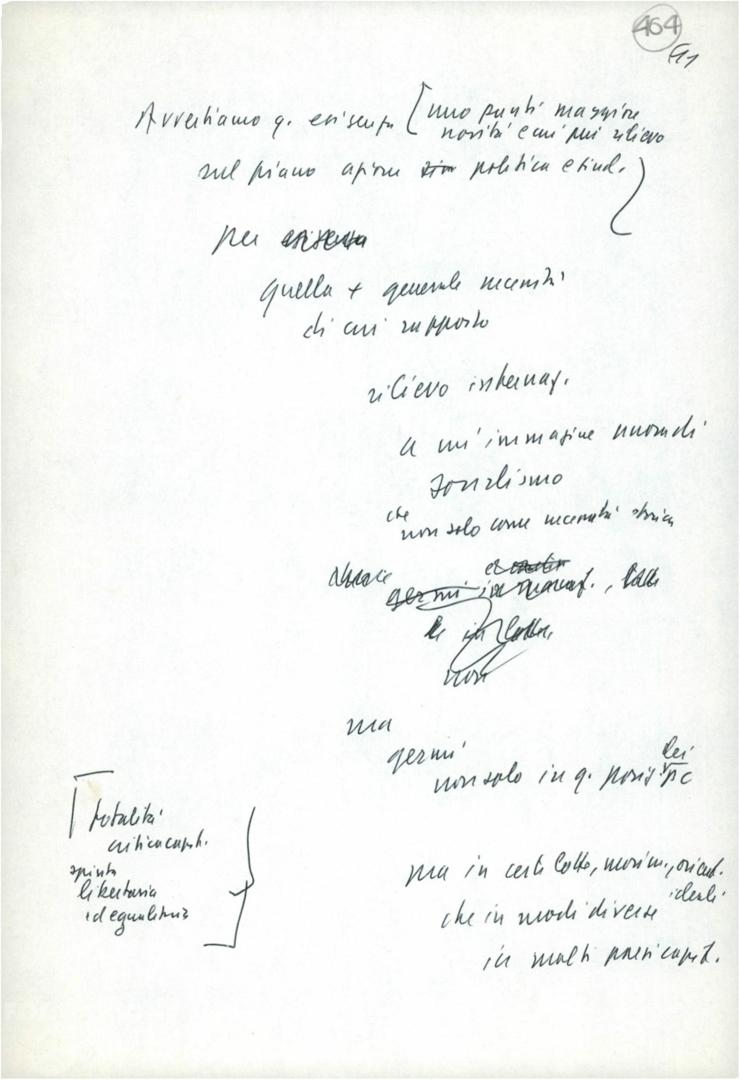 464
Avvertiamo q. esigenza [uno punti maggiore
novità e cui più rilievo
sul piano azione politica e sind.)
per esigenza
quella + generale necessità
di cui rapporto
rilievo internaz.
a un'immagine nuova di
socialismo
che
non solo come necessità storica
germi in
le in lotte
non
ma
germi
non solo in q. posiz. dei PC
totalità
critica capit.
spinta
libertaria
ed egualitaria
ma in certe lotte, movim., orient.
ideali
che in modi diversi
in molti paesi capit.